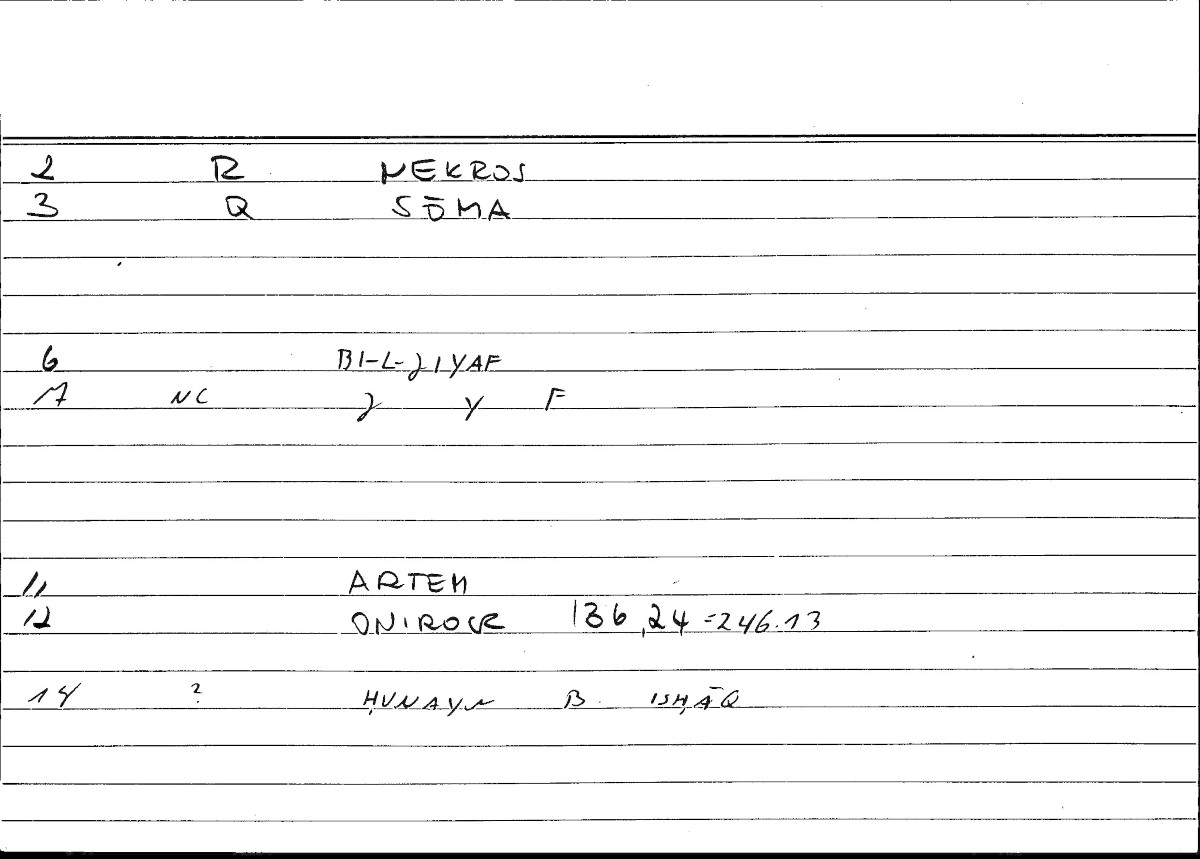 2 R NEKROS
3 Q SŌMA
6 BI-L-ʒIYAF
7 NC ʒ Y F
11 ARTEM
12 ONIROCR 136,24=246.13
14 ? ḤUNAYN B. ISḤĀQ